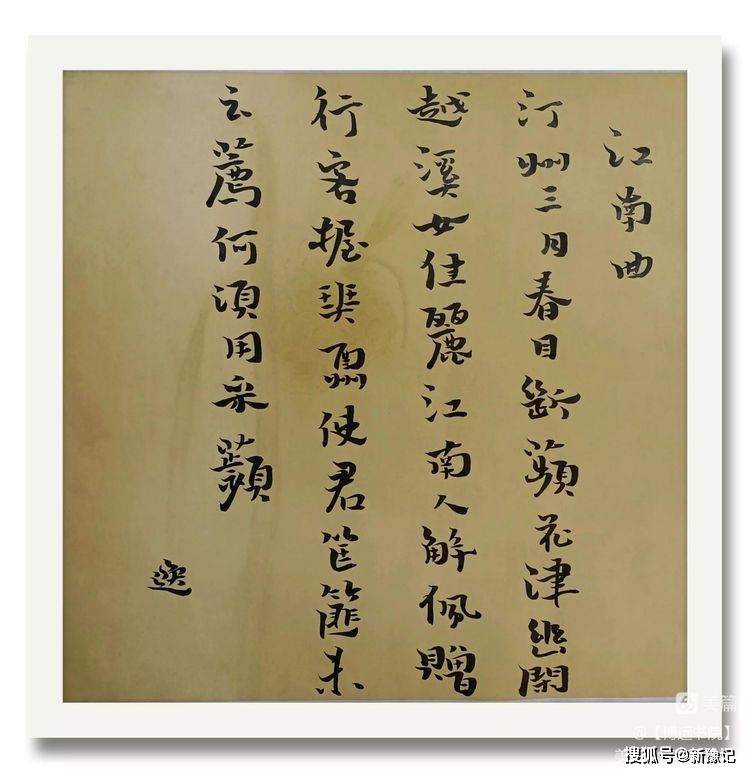 江南曲
汀州三月春日斷蘋花津幽閑
越溪女佳麗江南人解佩贈
行客握酬使君筐篚未
云薦何須用采蘋
逸
美篇
搜狐号@新豫记